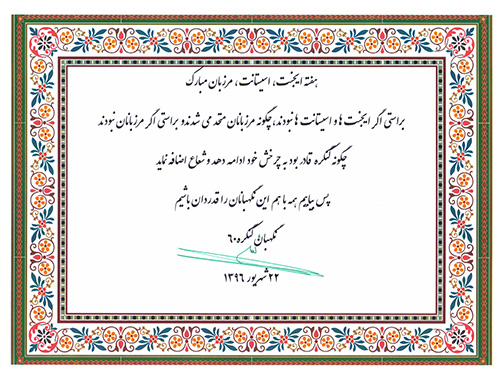 هفته ایجنت، اسیتانت، مرزبان مبارک
براستی اگر ایجنت ها و اسیتانت ها نبودند، چگونه مرزبانان متحد می شدند و براستی اگر مرزبانان نبودند
چگونه کنگره قادر بود به چرخش خود ادامه دهد و شعاع اضافه نماید
پس بیاییم همه با هم این نگهبانان را قدردان باشیم
نگهبان کنگره ۶۰
۲۲ شهریور ۱۳۹۶